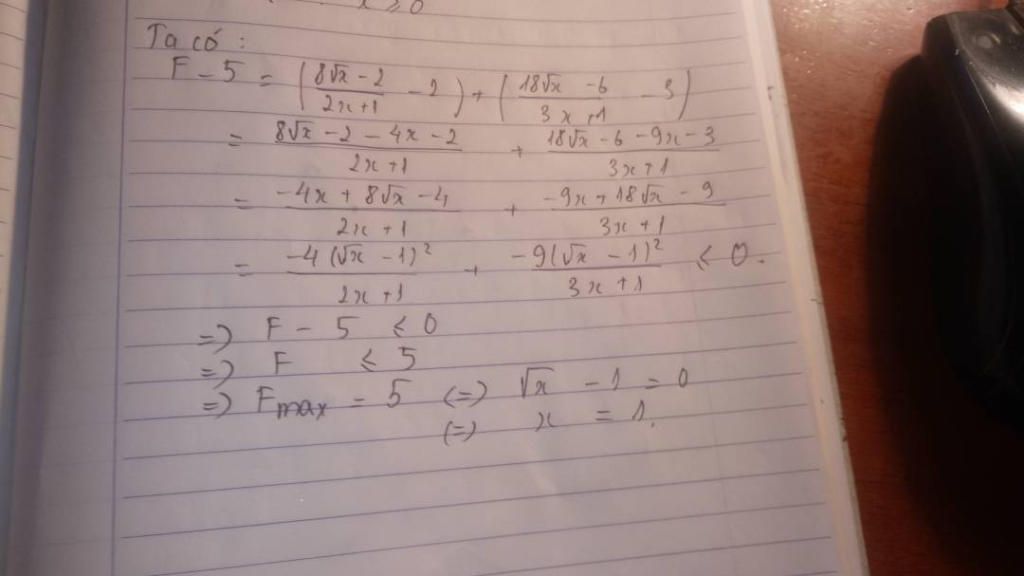 x ≥ 0
Ta có :
F - 5 = ( (8√x - 2)/(2x+1) - 2 ) + ( (18√x - 6)/(3x+1) - 3 )
= (8√x - 2 - 4x - 2)/(2x+1) + (18√x - 6 - 9x - 3)/(3x+1)
= (-4x + 8√x - 4)/(2x+1) + (-9x + 18√x - 9)/(3x+1)
= (-4(√x - 1)²)/(2x+1) + (-9(√x - 1)²)/(3x+1) ≤ 0.
=) F - 5 ≤ 0
=) F ≤ 5
=) Fmax = 5 (=) √x - 1 = 0
(=) x = 1.